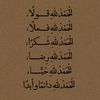 الحَمْدُ للهِ قَولًا،
الحَمْدُ للهِ فِعلًا،
الحَمْدُ للهِ شُكرًا،
الحَمْدُ للهِ رِضا،
الحَمْدُ للهِ حُبًّا،
الحَمْدُ للهِ دَائمًا وأبدًا